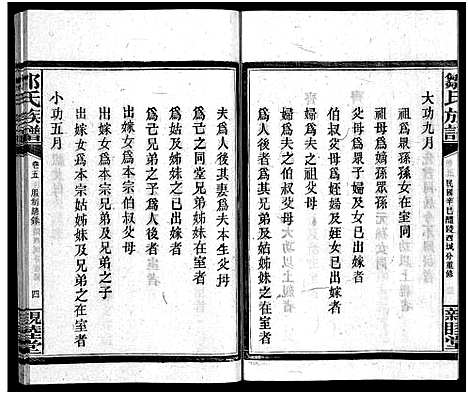 鄒氏族譜
民國辛巳醴陵西城分重修
親睦堂
大功九月
祖爲衆孫孫女在室同
父母爲衆子婦及女已出嫁者
伯叔父母爲姪婦及姪女已出嫁者
婦爲夫之祖父母
婦爲夫之伯叔父母
夫爲人後者其妻爲夫本生父母
爲己之同堂兄弟姊妹在室者
爲姑及姊妹之已出嫁者
爲己兄弟之子爲人後者
出嫁女爲本宗伯叔父母
出嫁女爲本宗兄弟及兄弟之子
出嫁女爲本宗姑姊妹及兄弟之女在室者
小功五月
鄒氏族譜
卷五
四
親睦堂